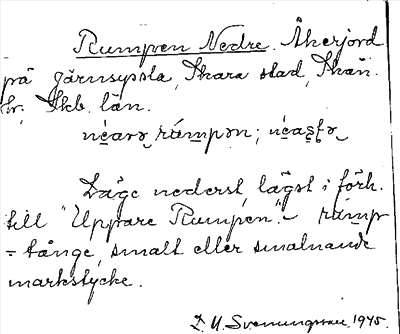 Rumpen Nedre. Åkerjord
på Järnsyssla, Skara stad, Skån.
hr, Skb. län.
néarə rúmpən; néaʂtə
Läge nederst, lägst i förh.
till "Uppare Rumpen". - rump
= tånge, smalt eller smalnande
markstycke.
D. U. Svenungsson 1945.